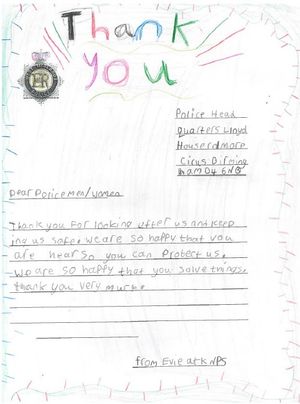 Thank
you
Police Head
Quarters Lloyd
House colmore
Circus Birming
ham D4 6NQ
Dear Policemen/women
Thank you For looking after us and keep
ing us safe. We are so happy that you
are hear so you can protect us.
We are so happy that you solve things.
thank you very much.
from Evie at KNPS